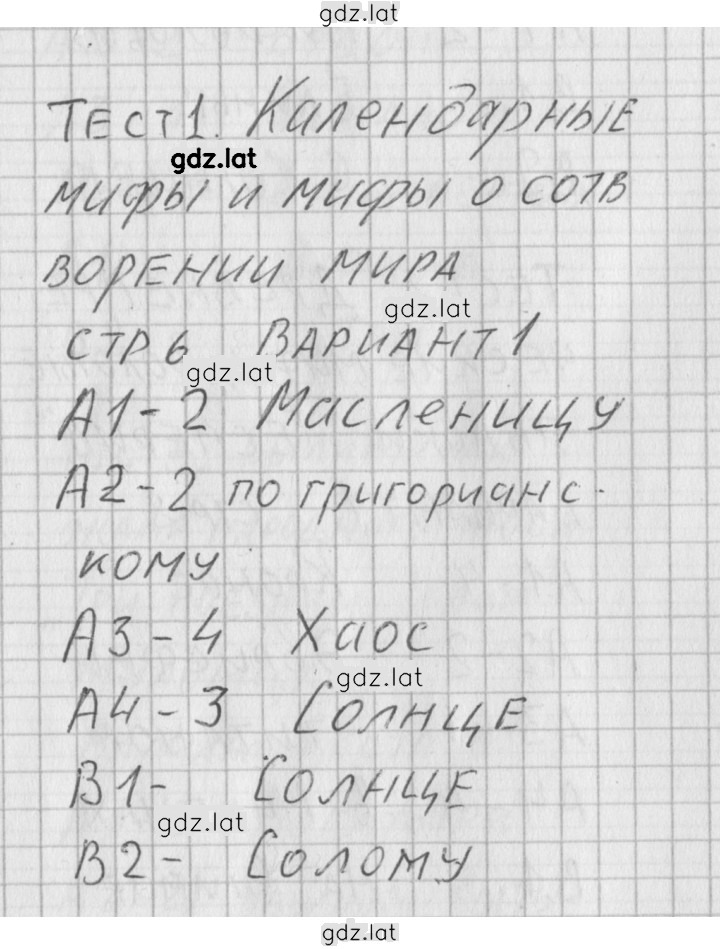 gdz.lat
Тест 1. Календарные
gdz.lat
мифы и мифы о сотв
ворении мира
gdz.lat
стр 6 Вариант 1
gdz.lat
А1-2 Масленицу
А2-2 по григорианс-
кому
А3-4 Хаос
gdz.lat
А4-3 Солнце
В1- Солнце
gdz.lat
В2- Солому
gdz.lat